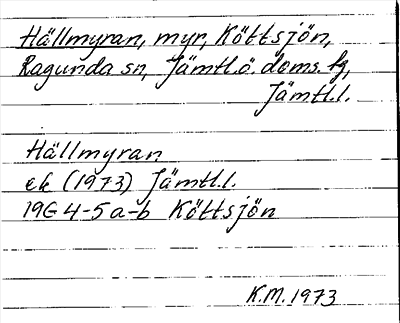 Hällmyran, myr, Köttsjön,
Ragunda sn, Jämtl.ö. doms. fg,
Jämtl.l.
Hällmyran
ek (1973) Jämtl.l.
19G 4-5 a-b Köttsjön
K.M. 1973